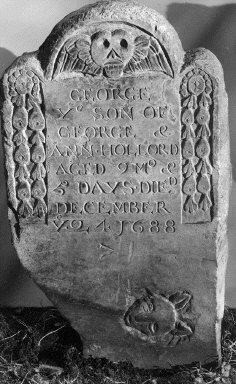 GEORGE
Yᵉ SON OF
GEORGE &
ANN HOLFORD
AGED 9 Mᵒ &
5 DAYS DIEᴰ
DECEMBER
Yᵉ 4 1688